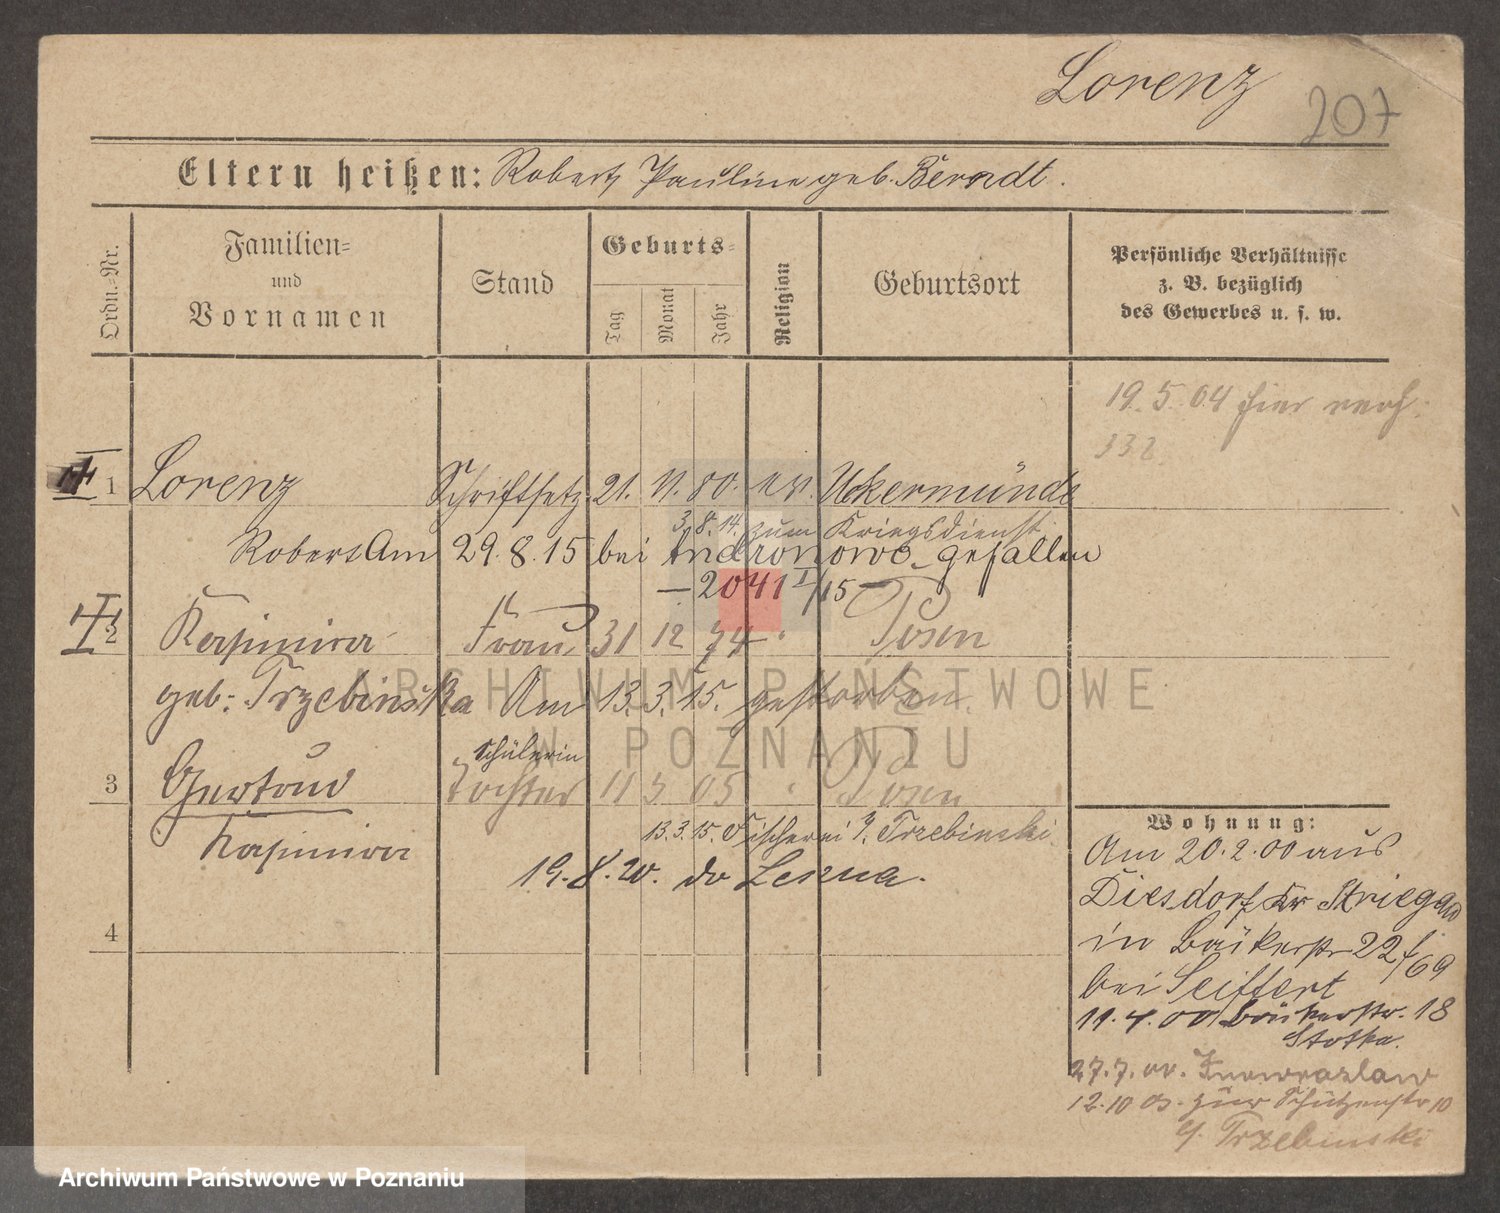 Lorenz
207
Eltern heißen: Robert Pauline geb. Berndt.
Ordn.-Nr.
Familien-
und
Vornamen
Stand
Geburts-
Tag
Monat
Jahr
Religion
Geburtsort
Persönliche Verhältnisse
z. B. bezüglich
des Gewerbes u. s. w.
19. 5. 04 hier verh.
332
1 Lorenz Schriftsetz. 21. 11. 80. ev. Uckermünde
3. 8. 14. zum Kriegsdienst
Robert Am 29. 8. 15 bei Andronowo gefallen
— 2041 I/15 —
2 Kasimira Frau 31 12 74 " Posen
geb. Trzebinska Am 13. 3. 15. gestorben.
Schülerin
3 Gertrud Tochter 11 3 05 " Posen
13. 3. 15. Fischerei 9. Trzebinski
Kasimira
19. 8. 20. do Leszna.
4
Wohnung:
Am 20. 2. 00 aus
Diesdorf Kr Striegau
in Bäckerstr 22 /69
bei Seiffert
11. 4. 00 Bäckerstr. 18
Stotka.
27. 7. 00. Inowrazlaw
12. 10 03. zur Schützenstr 10
9. Trzebinski
ARCHIWUM PAŃSTWOWE
W POZNANIU
Archiwum Państwowe w Poznaniu